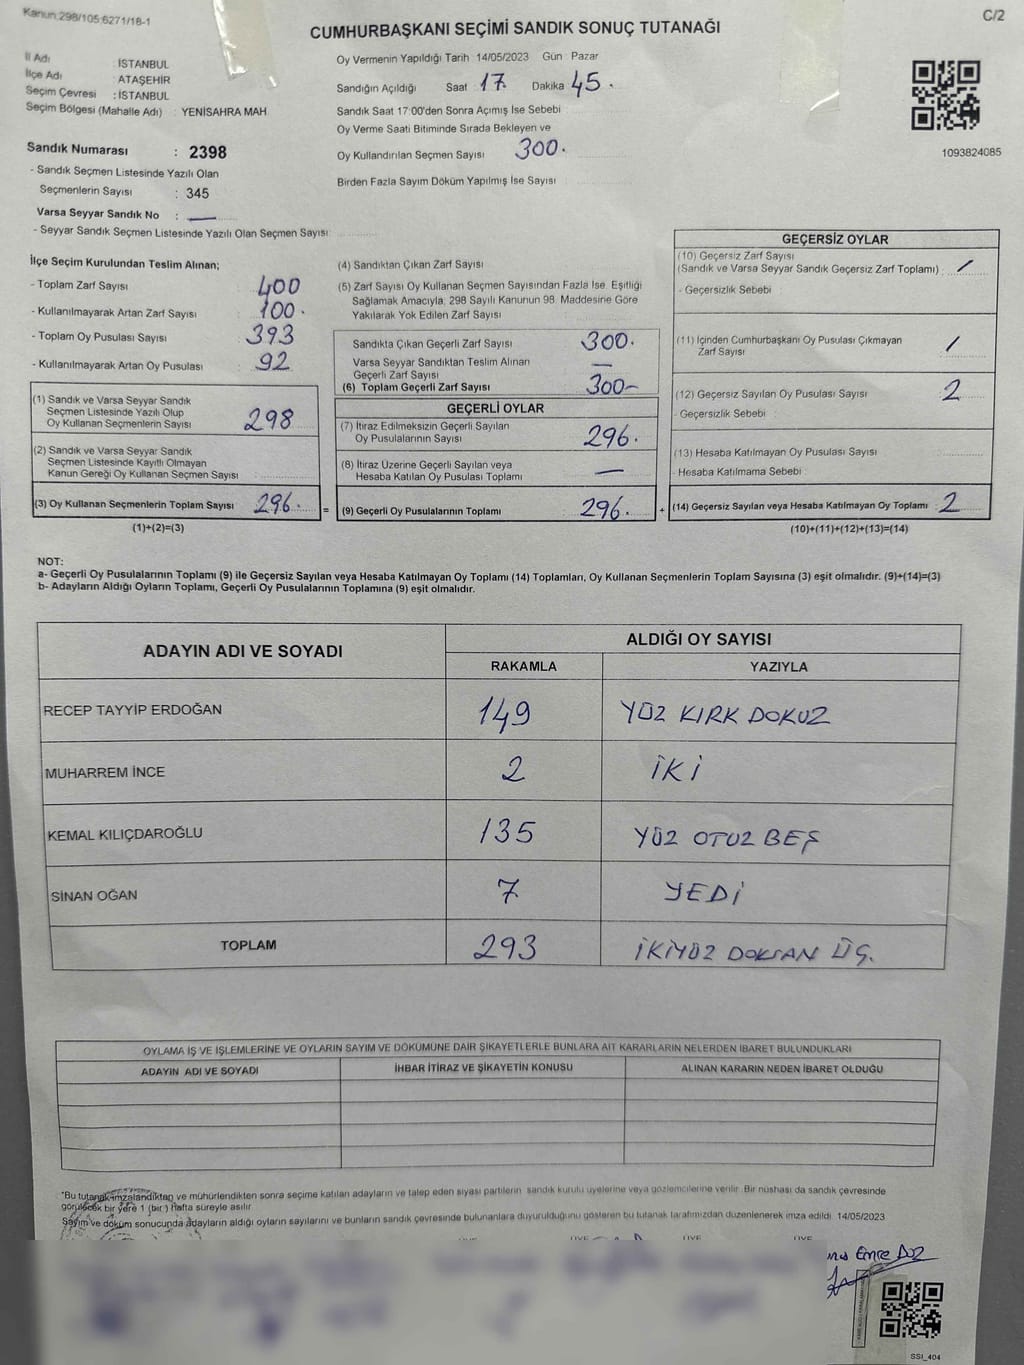 Kanun:298/105;6271/18-1
C/2
CUMHURBAŞKANI SEÇİMİ SANDIK SONUÇ TUTANAĞI
İl Adı : İSTANBUL
İlçe Adı : ATAŞEHİR
Seçim Çevresi : İSTANBUL
Seçim Bölgesi (Mahalle Adı) : YENİSAHRA MAH
Sandık Numarası : 2398
- Sandık Seçmen Listesinde Yazılı Olan
Seçmenlerin Sayısı : 345
Varsa Seyyar Sandık No : —
- Seyyar Sandık Seçmen Listesinde Yazılı Olan Seçmen Sayısı:
Oy Vermenin Yapıldığı Tarih 14/05/2023 Gün Pazar
Sandığın Açıldığı Saat 17. Dakika 45.
Sandık Saat 17:00'den Sonra Açımış İse Sebebi
Oy Verme Saati Bitiminde Sırada Bekleyen ve
Oy Kullandırılan Seçmen Sayısı 300.
Birden Fazla Sayım Döküm Yapılmış İse Sayısı :
1093824085
İlçe Seçim Kurulundan Teslim Alınan;
- Toplam Zarf Sayısı : 400
- Kullanılmayarak Artan Zarf Sayısı : 100.
- Toplam Oy Pusulası Sayısı : 393
- Kullanılmayarak Artan Oy Pusulası : 92
(1) Sandık ve Varsa Seyyar Sandık
Seçmen Listesinde Yazılı Olup
Oy Kullanan Seçmenlerin Sayısı : 298
(2) Sandık ve Varsa Seyyar Sandık
Seçmen Listesinde Kayıtlı Olmayan
Kanun Gereği Oy Kullanan Seçmen Sayısı :
(3) Oy Kullanan Seçmenlerin Toplam Sayısı 296.
(1)+(2)=(3)
(4) Sandıktan Çıkan Zarf Sayısı :
(5) Zarf Sayısı Oy Kullanan Seçmen Sayısından Fazla İse, Eşitliği
Sağlamak Amacıyla, 298 Sayılı Kanunun 98. Maddesine Göre
Yakılarak Yok Edilen Zarf Sayısı :
Sandıkta Çıkan Geçerli Zarf Sayısı : 300.
Varsa Seyyar Sandıktan Teslim Alınan
Geçerli Zarf Sayısı : —
(6) Toplam Geçerli Zarf Sayısı : 300—
GEÇERLİ OYLAR
(7) İtiraz Edilmeksizin Geçerli Sayılan
Oy Pusulalarının Sayısı : 296.
(8) İtiraz Üzerine Geçerli Sayılan veya
Hesaba Katılan Oy Pusulası Toplamı : —
= (9) Geçerli Oy Pusulalarının Toplamı : 296.
GEÇERSİZ OYLAR
(10) Geçersiz Zarf Sayısı
(Sandık ve Varsa Seyyar Sandık Geçersiz Zarf Toplamı) : /
- Geçersizlik Sebebi :
(11) İçinden Cumhurbaşkanı Oy Pusulası Çıkmayan
Zarf Sayısı : /
(12) Geçersiz Sayılan Oy Pusulası Sayısı : 2
- Geçersizlik Sebebi :
(13) Hesaba Katılmayan Oy Pusulası Sayısı :
- Hesaba Katılmama Sebebi :
+ (14) Geçersiz Sayılan veya Hesaba Katılmayan Oy Toplamı : 2
(10)+(11)+(12)+(13)=(14)
NOT:
a- Geçerli Oy Pusulalarının Toplamı (9) ile Geçersiz Sayılan veya Hesaba Katılmayan Oy Toplamı (14) Toplamları, Oy Kullanan Seçmenlerin Toplam Sayısına (3) eşit olmalıdır. (9)+(14)=(3)
b- Adayların Aldığı Oyların Toplamı, Geçerli Oy Pusulalarının Toplamına (9) eşit olmalıdır.
ADAYIN ADI VE SOYADI
ALDIĞI OY SAYISI
RAKAMLA YAZIYLA
RECEP TAYYİP ERDOĞAN 149 YÜZ KIRK DOKUZ
MUHARREM İNCE 2 İKİ
KEMAL KILIÇDAROĞLU 135 YÜZ OTUZ BEŞ
SİNAN OĞAN 7 YEDİ
TOPLAM 293 İKİYÜZ DOKSAN ÜÇ.
OYLAMA İŞ VE İŞLEMLERİNE VE OYLARIN SAYIM VE DÖKÜMÜNE DAİR ŞİKAYETLERLE BUNLARA AİT KARARLARIN NELERDEN İBARET BULUNDUKLARI
ADAYIN ADI VE SOYADI İHBAR İTİRAZ VE ŞİKAYETİN KONUSU ALINAN KARARIN NEDEN İBARET OLDUĞU
*Bu tutanak imzalandıktan ve mühürlendikten sonra seçime katılan adayların ve talep eden siyasi partilerin sandık kurulu üyelerine veya gözlemcilerine verilir. Bir nüshası da sandık çevresinde
görülecek bir yere 1 (bir ) hafta süreyle asılır
Sayım ve döküm sonucunda adayların aldığı oyların sayılarını ve bunların sandık çevresinde bulunanlara duyurulduğunu gösteren bu tutanak tarafımızdan düzenlenerek imza edildi. 14/05/2023
ÜYE ÜYE ÜYE
Emre
SSI_404